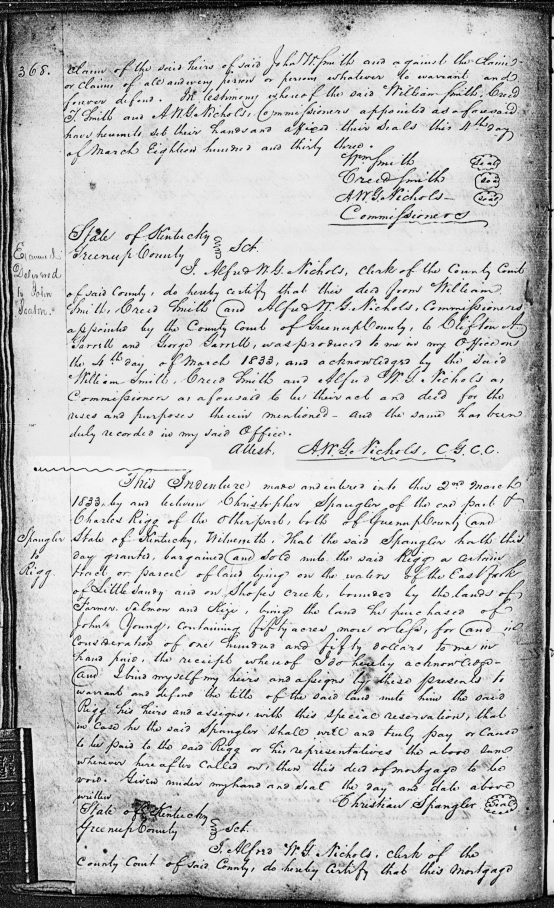 368.
claim of the said heirs of said John W Smith and against the claim
or claims of all and every person or persons whatever to warrant and
forever defend. In testimony whereof the said William Smith, Creed
Smith and A.W.G. Nichols, Commissioners appointed as aforesaid
have hereunto set their hands and affixed their seals this 4th day
of March Eighteen hundred and thirty three.
Wm Smith Seal
Creed Smith Seal
A.W.G. Nichols Seal
Commissioners
State of Kentucky
Greenup County Sct.
Delivered
to John
Seaton.
I, Alfred W. G. Nichols, clerk of the County Court
of said County, do hereby certify that this deed from William
Smith, Creed Smith and Alfred W. G. Nichols, Commissioners
appointed by the County Court of Greenup County, to Clifton A
Garrett and George Garrett, was produced to me in my Office on
the 4th day of March 1833, and acknowledged by the said
William Smith, Creed Smith and Alfred W G Nichols as
Commissioners as aforesaid to be their act and deed for the
uses and purposes therein mentioned - and the same has been
duly recorded in my said Office.
Attest. A.W.G. Nichols, C.G.C.C.
This Indenture made and entered into this 2nd March
1833, by and between Christopher Spangler of the one part &
Charles Rigg of the other part, both of Greenup County and
Spangler
to
Rigg
State of Kentucky, Witnesseth, That the said Spangler hath this
day granted, bargained and sold unto the said Rigg a certain
tract or parcel of land lying on the waters of the East fork
of Little Sandy and on Shopes creek, bounded by the lands of
Farmer, Salmon and, being the land he purchased of
John Young, containing fifty acres more or less, for and in
consideration of one hundred and fifty dollars to me in
hand paid, the receipt whereof I do hereby acknowledge -
and I bind myself my heirs and assigns by these presents to
warrant and defend the title of the said land unto him the said
Rigg his heirs and assigns, with this special reservation, that
in case he the said Spangler shall well and truly pay or cause
to be paid to the said Rigg or his representatives the above sum
whenever hereafter called on, then this deed of mortgage to be
void. Given under my hand and seal the day and date above
written Christian Spangler Seal
State of Kentucky
Greenup County Sct.
I, Alfred W. G. Nichols, clerk of the
County Court of said County, do hereby certify that this Mortgage